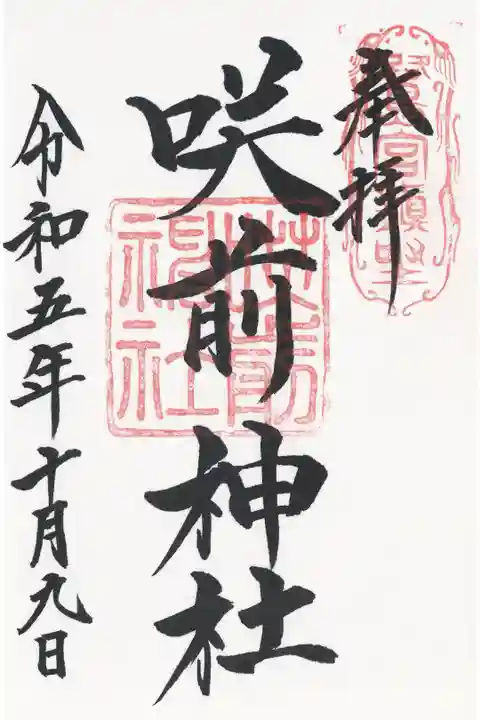 奉拝
咲前神社
咲前神社
令和五年十月九日